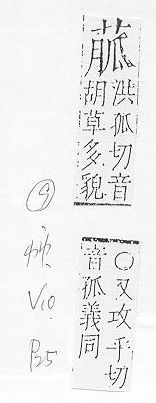 洪孤切音
胡草多貌
○又攻乎切
音孤義同
V10
P35